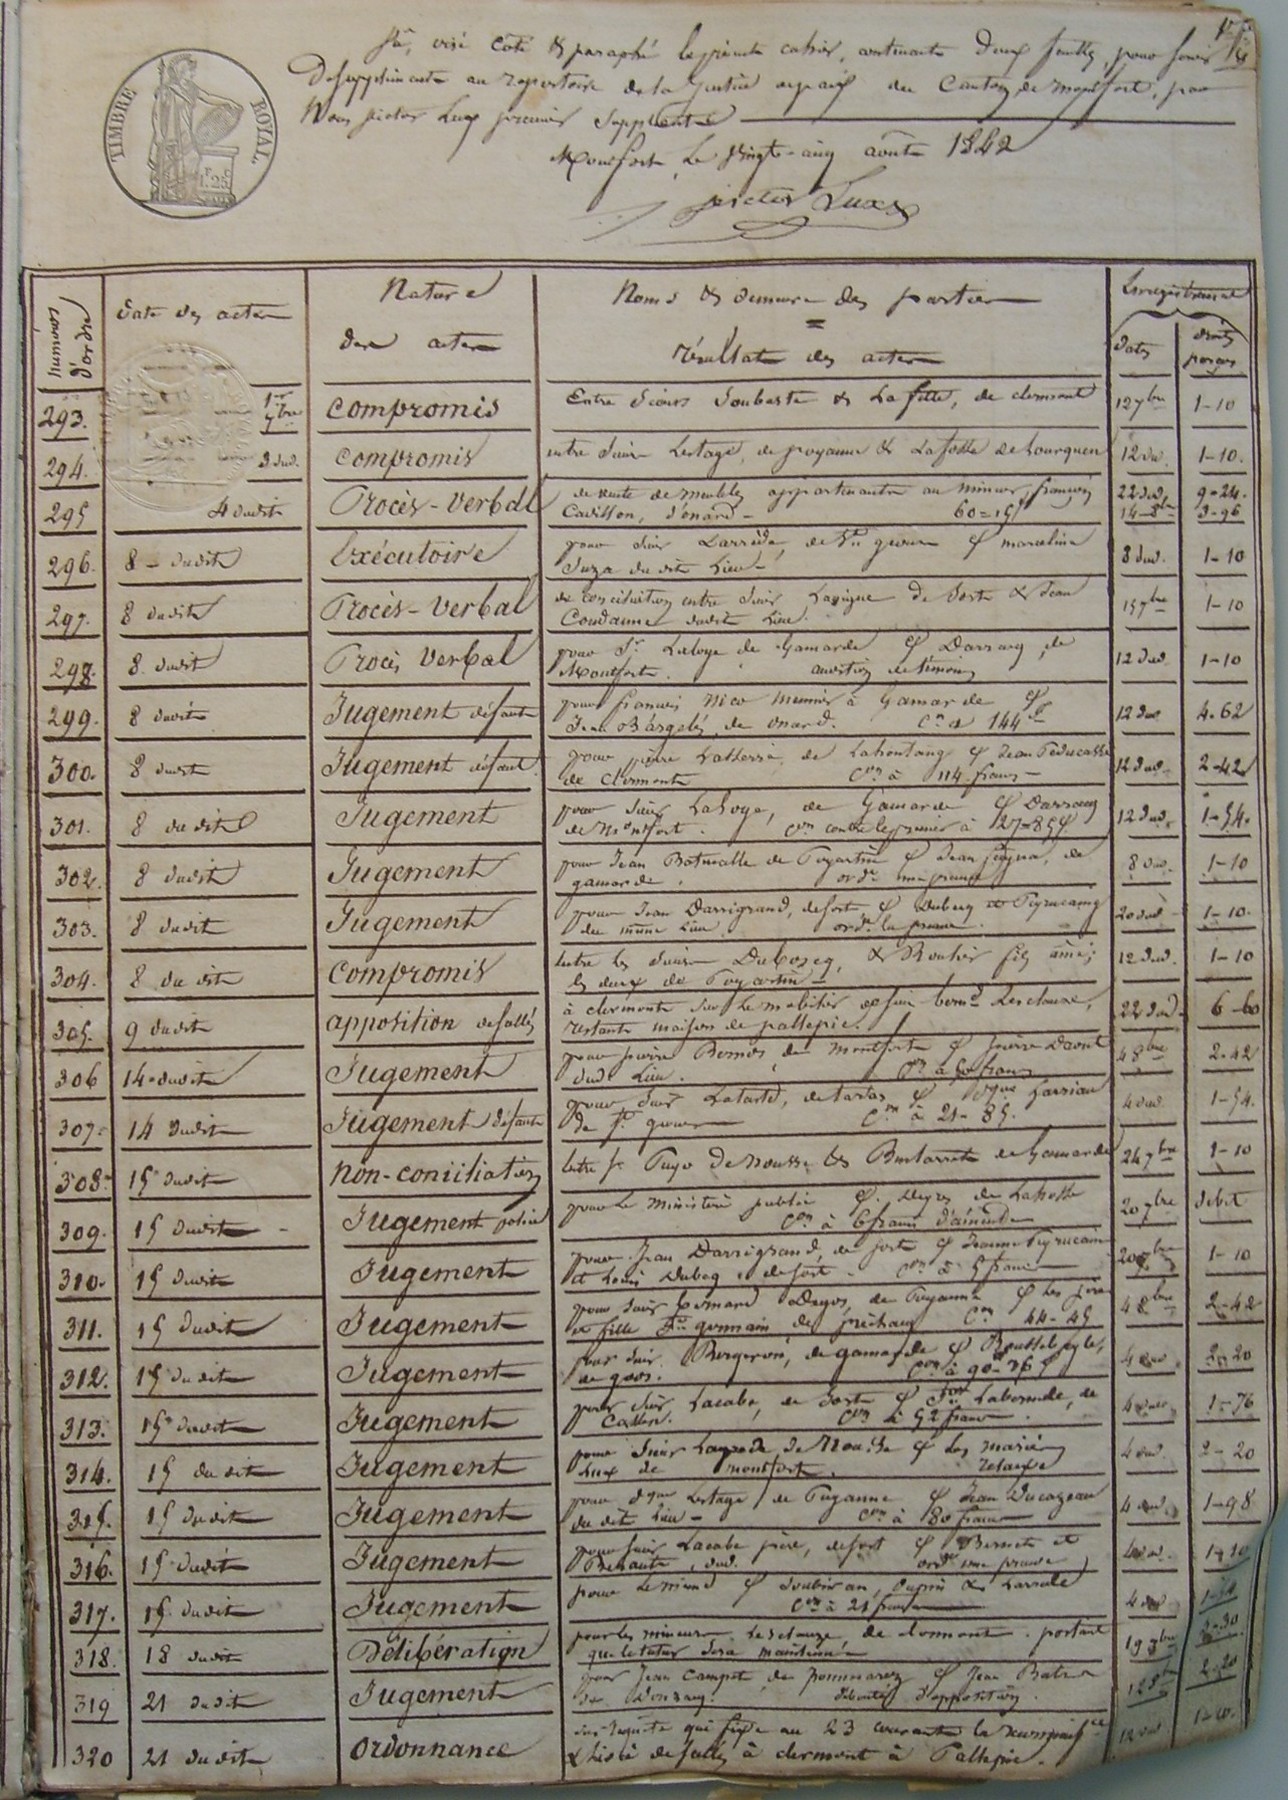 TIMBRE ROYAL
1F. 25C
Vû, visé côté & paraphé le présent cahier, contenant deux feuilles, pour servir
de supplément au repertoire de la justice de paix du Canton de Montfort, par
Nous Victor Luxey premier Suppléant
Montfort, Le Vingt-cinq août 1842
Victor Luxey
Numéros d'ordre
Date des actes
Nature des actes
Noms & demeure des parties
=
résultat des actes
Enregistrement
Dates
droits perçus
293. 1er 7bre Compromis Entre Sieurs Soubaste & Lafitte, de clermont 12 7bre 1-10
294. 3 dud. Compromis entre Sieurs Lestage, de poyanne & Lafosse de Lourquen 12 dud. 1-10.
295 4 dudit Procès-Verbal de vente de meubles appartenant au mineur françois 22 dud. 9-24.
Cavillon, d'onard - 60=15 14-8bre 3-96
296. 8 - dudit Exécutoire pour Sieur Larrède, de St geours Marceline 8 dud. 1-10
Suza du dit Lieu
297. 8 dudit Procès-Verbal de conciliation entre Sieur Lavigne de Sort & Jean 15 7bre 1-10
Coudanne dudit Lieu.
298. 8. dudit Procès Verbal pour Sr Laloge de Gamarde Darracq, de 12 dud. 1-10
Montfort. audition de témoins
299. 8 dudit Jugement défaut pour francois Nico meunier à Gamarde 12 dud 4-62
Jean Bargelés, de onard. Con à 144
300. 8 dudit Jugement défaut pour pierre Lasserre, de Lahontang Jean Peducasse 12 dud. 2-42
de Clermont Con à 114 francs
301. 8 du dit Jugement pour Sieur Laloge, de Gamarde Darracq 12 dud. 1-54.
de Montfort. Con contre le premier à 27-85
302. 8 dudit Jugement pour Jean Batmalle de Poyartin Jean de 8 dud. 1-10
gamarde. ordne une preuve
303. 8 dudit Jugement pour Jean Darrigrand, de sort Dubecq et Peyrucamp 20 dud 1-10.
du même Lieu ordne la preuve.
304. 8 du dit Compromis Entre les Sieurs Duboscq, & Routier fils ainé; 12 dud. 1-10
les deux de Poyartin
305. 9 dudit apposition de scellés à clermont sur Le mobilier de feu bernd Lesclauze, 22 dud. 6-60
restant maison de pallepie.
306 14 dudit Jugement pour pierre Bernos de montfort pierre Daout 4 8bre 2-42
dud. Lieu. Con à 50 francs
307. 14 dudit Jugement défaut pour Sieur Latarte, de tartas Larrieu 4 dud. 1-54.
de St geours Con à 21-85.
308. 15 dudit Non-conciliation Entre Sr Puyo de nousse & Bustarret de Gamarde 24 7bre 1-10
309. 15 dudit Jugement police pour Le ministère public Degos de Lahosse 20 7bre Debet
Con à 6 francs d'amende
310. 15 dudit Jugement pour Jean Darrigrand, de sort Jeanne Peyrucamp 20 7bre 1-10
et Louis Dubecq de sort. Con à 5 francs
311. 15 dudit Jugement pour Sieur bernard Degos, de Poyanne les père 4 8bre 2-42
et fille St germain de préchacq Con 44-45
312. 15 du dit Jugement pour Sieur Bergeron, de gamarde 4 dud. 2-20
de goos. Con à 90-36
313. 15 dudit Jugement pour Sieur Lacabe, de Sort Laborde, de 4 dud 1-76
Cassen. Con à 52 francs.
314. 15 du dit Jugement pour Sieur Lagrede, de Nousse les mariés 4 dud. 2-20
Lux de montfort. relaxe
315. 15 du dit Jugement pour Dque Lestage, de Poyanne Jean Ducazeau 4 dud. 1-98
du dit Lieu - Con à 80 francs
316. 15 dudit Jugement pour Sieur Lacabe père, de sort Bernet et 4 dud. 1-10
dud. ordne une preuve
317. 15 du dit Jugement pour Le même Soubiran, Dupin & Larrede 4 dud 1-10
Con à 21 francs
318. 18 dudit Délibération pour les mineurs Lesclauze de clermont. portant 19 7bre 3-30
que le tuteur sera maintenu
319 21 dudit Jugement pour Jean Campet de pommarez Jean Batz 2-20
de Donzacq. débouté d'opposition.
320 21 du dit Ordonnance sur requête qui fixe au 23 courant la reconnaissce 12 dud 1-10.
& levée de scellés à clermont à Pallepie.